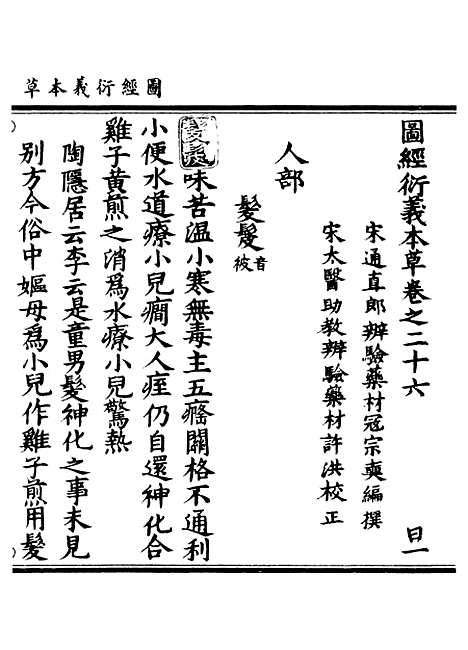 圖經衍義本草
圖經衍義本草卷之二十六 日一
宋通直郎辨驗藥材寇宗奭編撰
宋太醫助教辨驗藥材許洪校正
人部
髮髲音被
髮髲味苦溫小寒無毒主五癃關格不通利
小便水道療小兒癇大人痓仍自還神化合
雞子黃煎之消爲水療小兒驚熱
陶隱居云李云是童男髮神化之事未見
別方今俗中嫗母爲小兒作雞子煎用髮